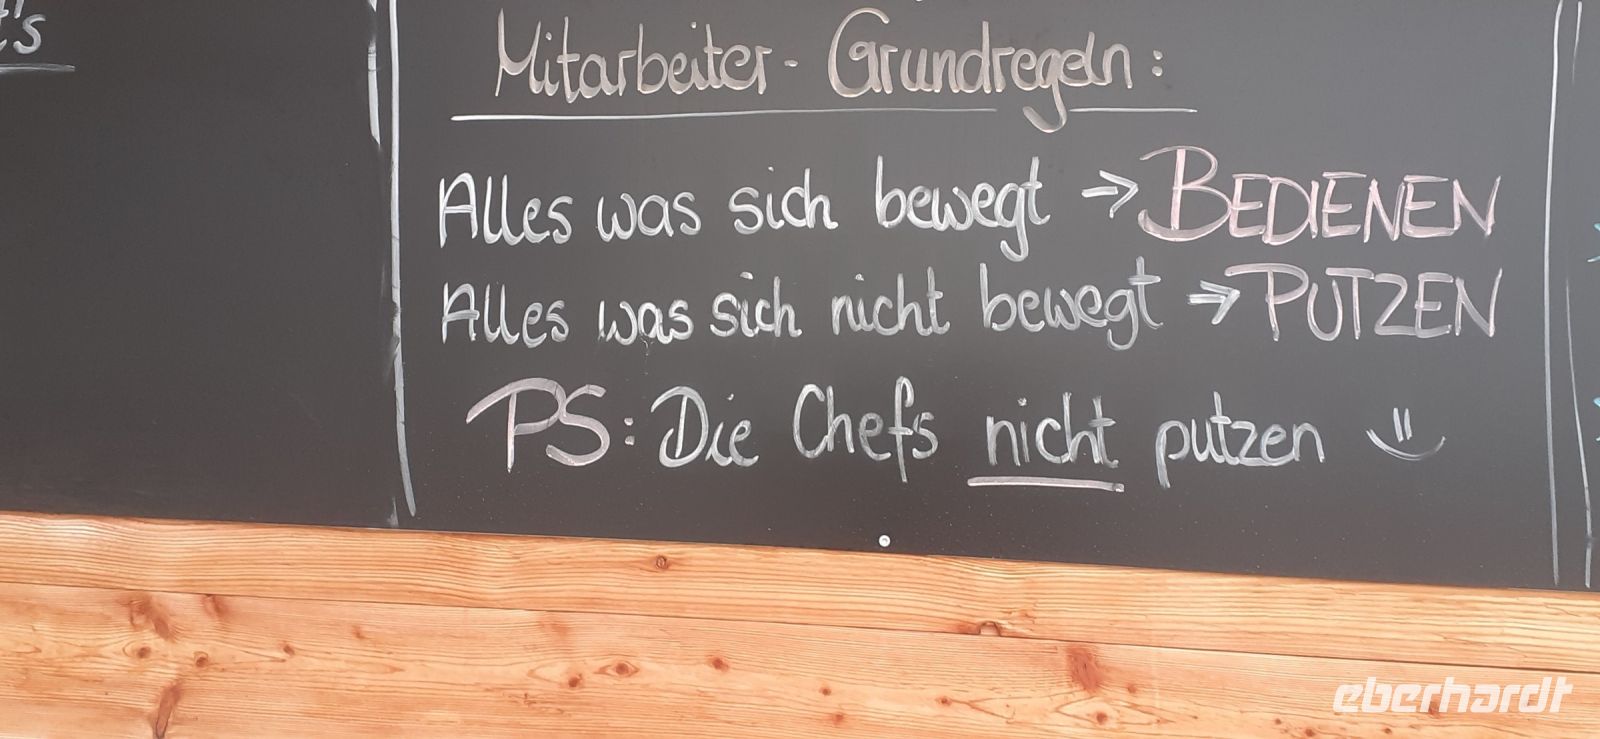 t's
Mitarbeiter-Grundregeln:
Alles was sich bewegt → BEDIENEN
Alles was sich nicht bewegt → PUTZEN
PS: Die Chefs nicht putzen
eberhardt